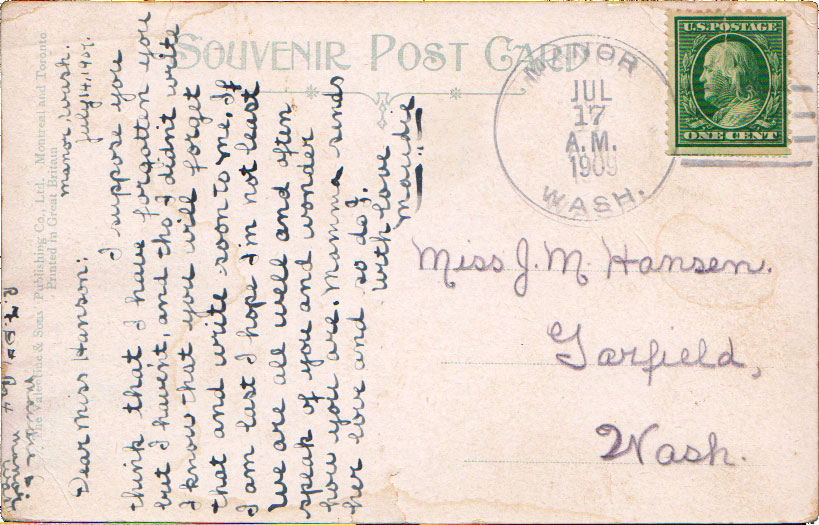 SOUVENIR POST CARD
U.S. POSTAGE
ONE CENT
MANOR
JUL
17
A.M.
1909
WASH.
Miss J. M. Hansen.
Garfield,
Wash.
Manor Wash.
July 14, 1909.
Dear Miss Hanson:
I suppose you
think that I have forgotten you
but I haven't, and tho' I didn't write
I know that you will forget
that and write soon to me. If
I am last I hope I'm not least
We are all well and often
speak of you and wonder
how you are. Mamma sends
her love and so do I.
With love
Maudie
The Valentine & Sons Publishing Co., Ltd., Montreal and Toronto
Printed in Great Britain
R.F.D.
Manor
Wash